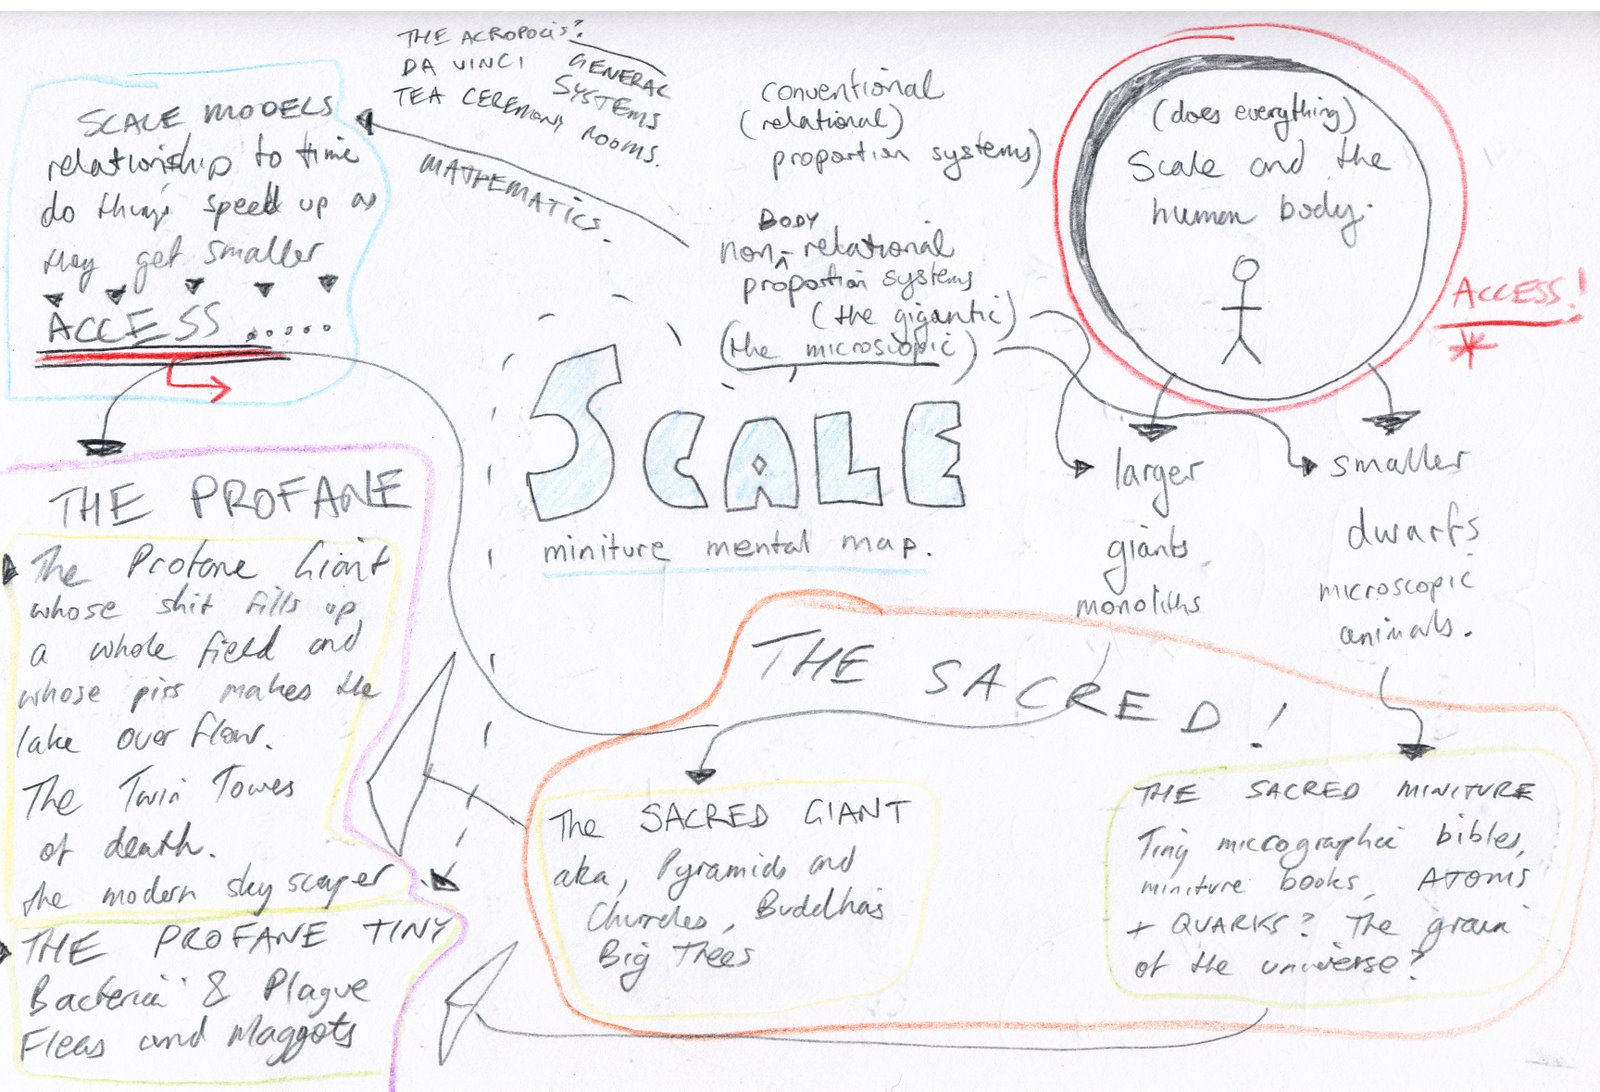 THE ACROPOLIS?
DA VINCI
TEA CEREMONY ROOMS.
GENERAL
SYSTEMS
MATHEMATICS.
SCALE MODELS
relationship to time
do things speed up as
they get smaller
ACCESS.....
conventional
(relational)
proportion systems)
BODY
non-relational
proportion systems
(the gigantic)
(the microscopic)
(does everything)
Scale and the
human body.
ACCESS!
*
SCALE
miniture mental map.
larger
giants
monoliths
smaller
dwarfs
microscopic
animals.
THE PROFANE
The Profane Giant
whose shit fills up
a whole field and
whose piss makes the
lake over flow.
The Twin Towes
of death.
the modern sky scaper
THE PROFANE TINY
Bacteria & Plague
Fleas and Maggots
THE SACRED!
The SACRED GIANT
aka, Pyramids and
Churches, Buddhas
Big Trees
THE SACRED MINITURE
Tiny micrographic bibles,
miniture books, ATOMS
+ QUARKS? The grain
of the universe?